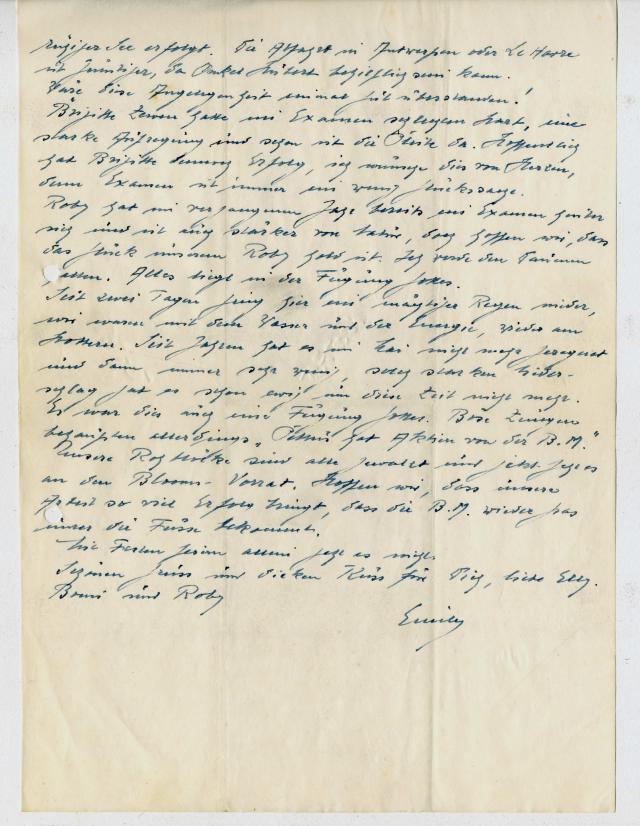 ruhiger See erfolgt. Die Abfahrt in Antwerpen oder Le Havre
ist günstiger, da Onkel Hubert behilflich sein kann.
Wäre diese Angelegenheit einmal gut überstanden!
Brigitte hatte ein Examen, eine
starke Aufregung und schon ist die da. Hoffentlich
hat Brigitte dennoch Erfolg, ich wünsche dies von Herzen,
denn Examen ist immer ein wenig Glückssache.
Roby hat im vergangenen Jahre bereits ein Examen hinter
sich und ist auch stärker von Natur, doch hoffen wir, dass
das Glück unserem Roby hold ist. Ich werde den Daumen
halten. Alles liegt in der Fügung Gottes.
Seit zwei Tagen ging hier ein mächtiger Regen nieder,
wir waren mit dem Wasser und der Energie, wieder am
Seit Jahren hat es im Mai nicht mehr geregnet
und dann immer sehr wenig, solch starken Nieder-
schlag gab es schon ewig um diese Zeit nicht mehr.
Es war dies auch eine Fügung Gottes. Böse Zungen
behaupten allerdings, " hat Aktien von der B.M."
Unsere sind alle gewalzt und jetzt geht es
an den Blooms-Vorrat. Hoffen wir, dass unsere
Arbeit so viel Erfolg bringt, dass die B.M. wieder was
unter die Füsse bekommt.
Mit allein geht es nicht.
Schönen Gruss und dicken Kuss für Dich, liebe Elly.
Bruni und Roby
Emily